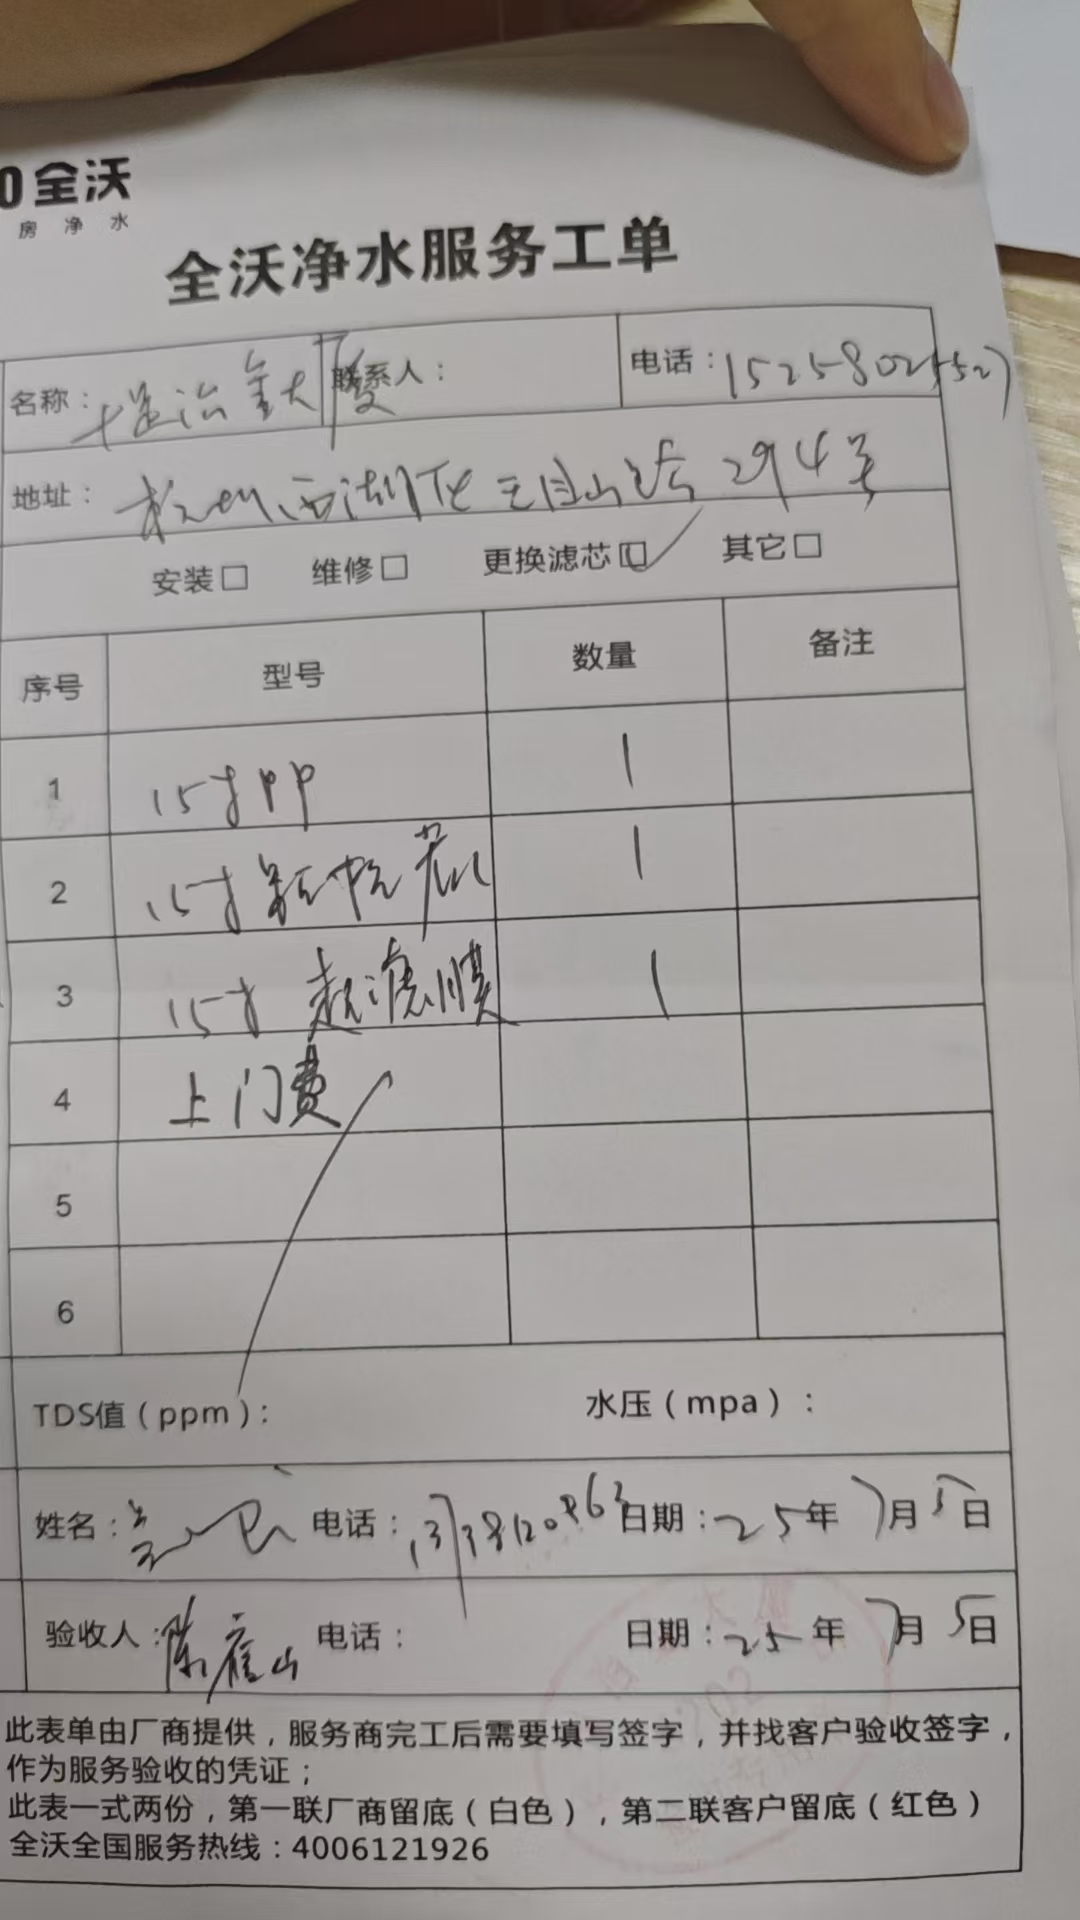 全沃
房净水
全沃净水服务工单
名称： 大厦 联系人： 电话：
地址：杭州西湖区天目山路294号
安装□ 维修□ 更换滤芯☑ 其它□
序号 型号 数量 备注
1 15寸PP 1
2 15寸 1
3 15寸 超滤膜 1
4 上门费
5
6
TDS值（ppm）： 水压（mpa）：
姓名： 电话： 日期：25年7月5日
验收人：陈 山 电话： 日期：25年7月5日
此表单由厂商提供，服务商完工后需要填写签字，并找客户验收签字，
作为服务验收的凭证；
此表一式两份，第一联厂商留底（白色），第二联客户留底（红色）
全沃全国服务热线：4006121926